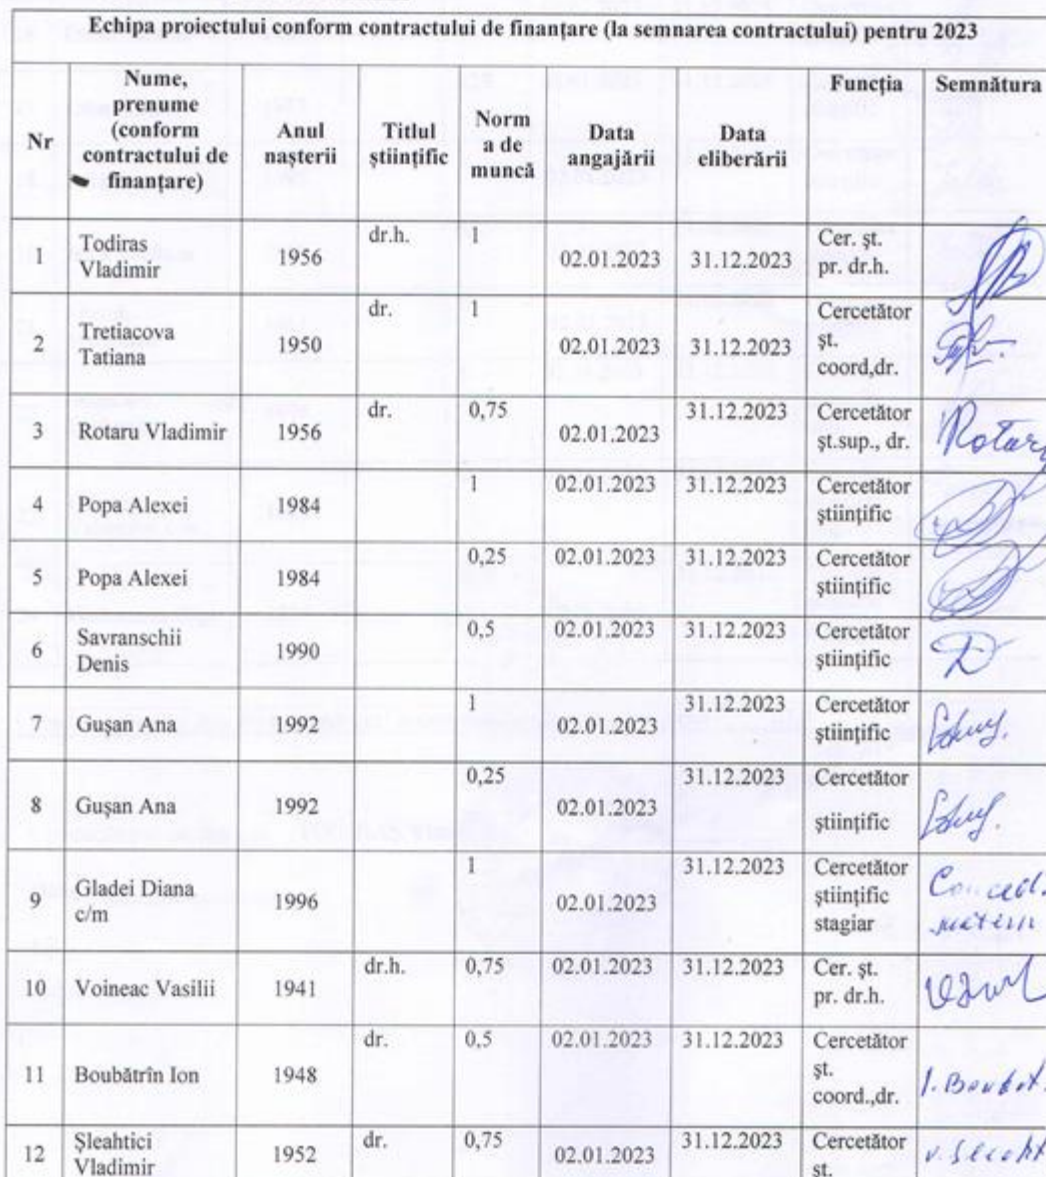 Echipa proiectului conform contractului de finanțare (la semnarea contractului) pentru 2023
Nr
Nume,
prenume
(conform
contractului de
finanțare)
Anul
nașterii
Titlul
științific
Norm
a de
muncă
Data
angajării
Data
eliberării
Funcția
Semnătura
1
Todiras
Vladimir
1956
dr.h.
1
02.01.2023
31.12.2023
Cer. șt.
pr. dr.h.
2
Tretiacova
Tatiana
1950
dr.
1
02.01.2023
31.12.2023
Cercetător
șt.
coord,dr.
3
Rotaru Vladimir
1956
dr.
0,75
02.01.2023
31.12.2023
Cercetător
șt.sup., dr.
Rotaru
4
Popa Alexei
1984
1
02.01.2023
31.12.2023
Cercetător
științific
5
Popa Alexei
1984
0,25
02.01.2023
31.12.2023
Cercetător
științific
6
Savranschii
Denis
1990
0,5
02.01.2023
31.12.2023
Cercetător
științific
7
Gușan Ana
1992
1
02.01.2023
31.12.2023
Cercetător
științific
8
Gușan Ana
1992
0,25
02.01.2023
31.12.2023
Cercetător
științific
9
Gladei Diana
c/m
1996
1
02.01.2023
31.12.2023
Cercetător
științific
stagiar
10
Voineac Vasilii
1941
dr.h.
0,75
02.01.2023
31.12.2023
Cer. șt.
pr. dr.h.
11
Boubătrîn Ion
1948
dr.
0,5
02.01.2023
31.12.2023
Cercetător
șt.
coord.,dr.
12
Șleahtici
Vladimir
1952
dr.
0,75
02.01.2023
31.12.2023
Cercetător
șt.